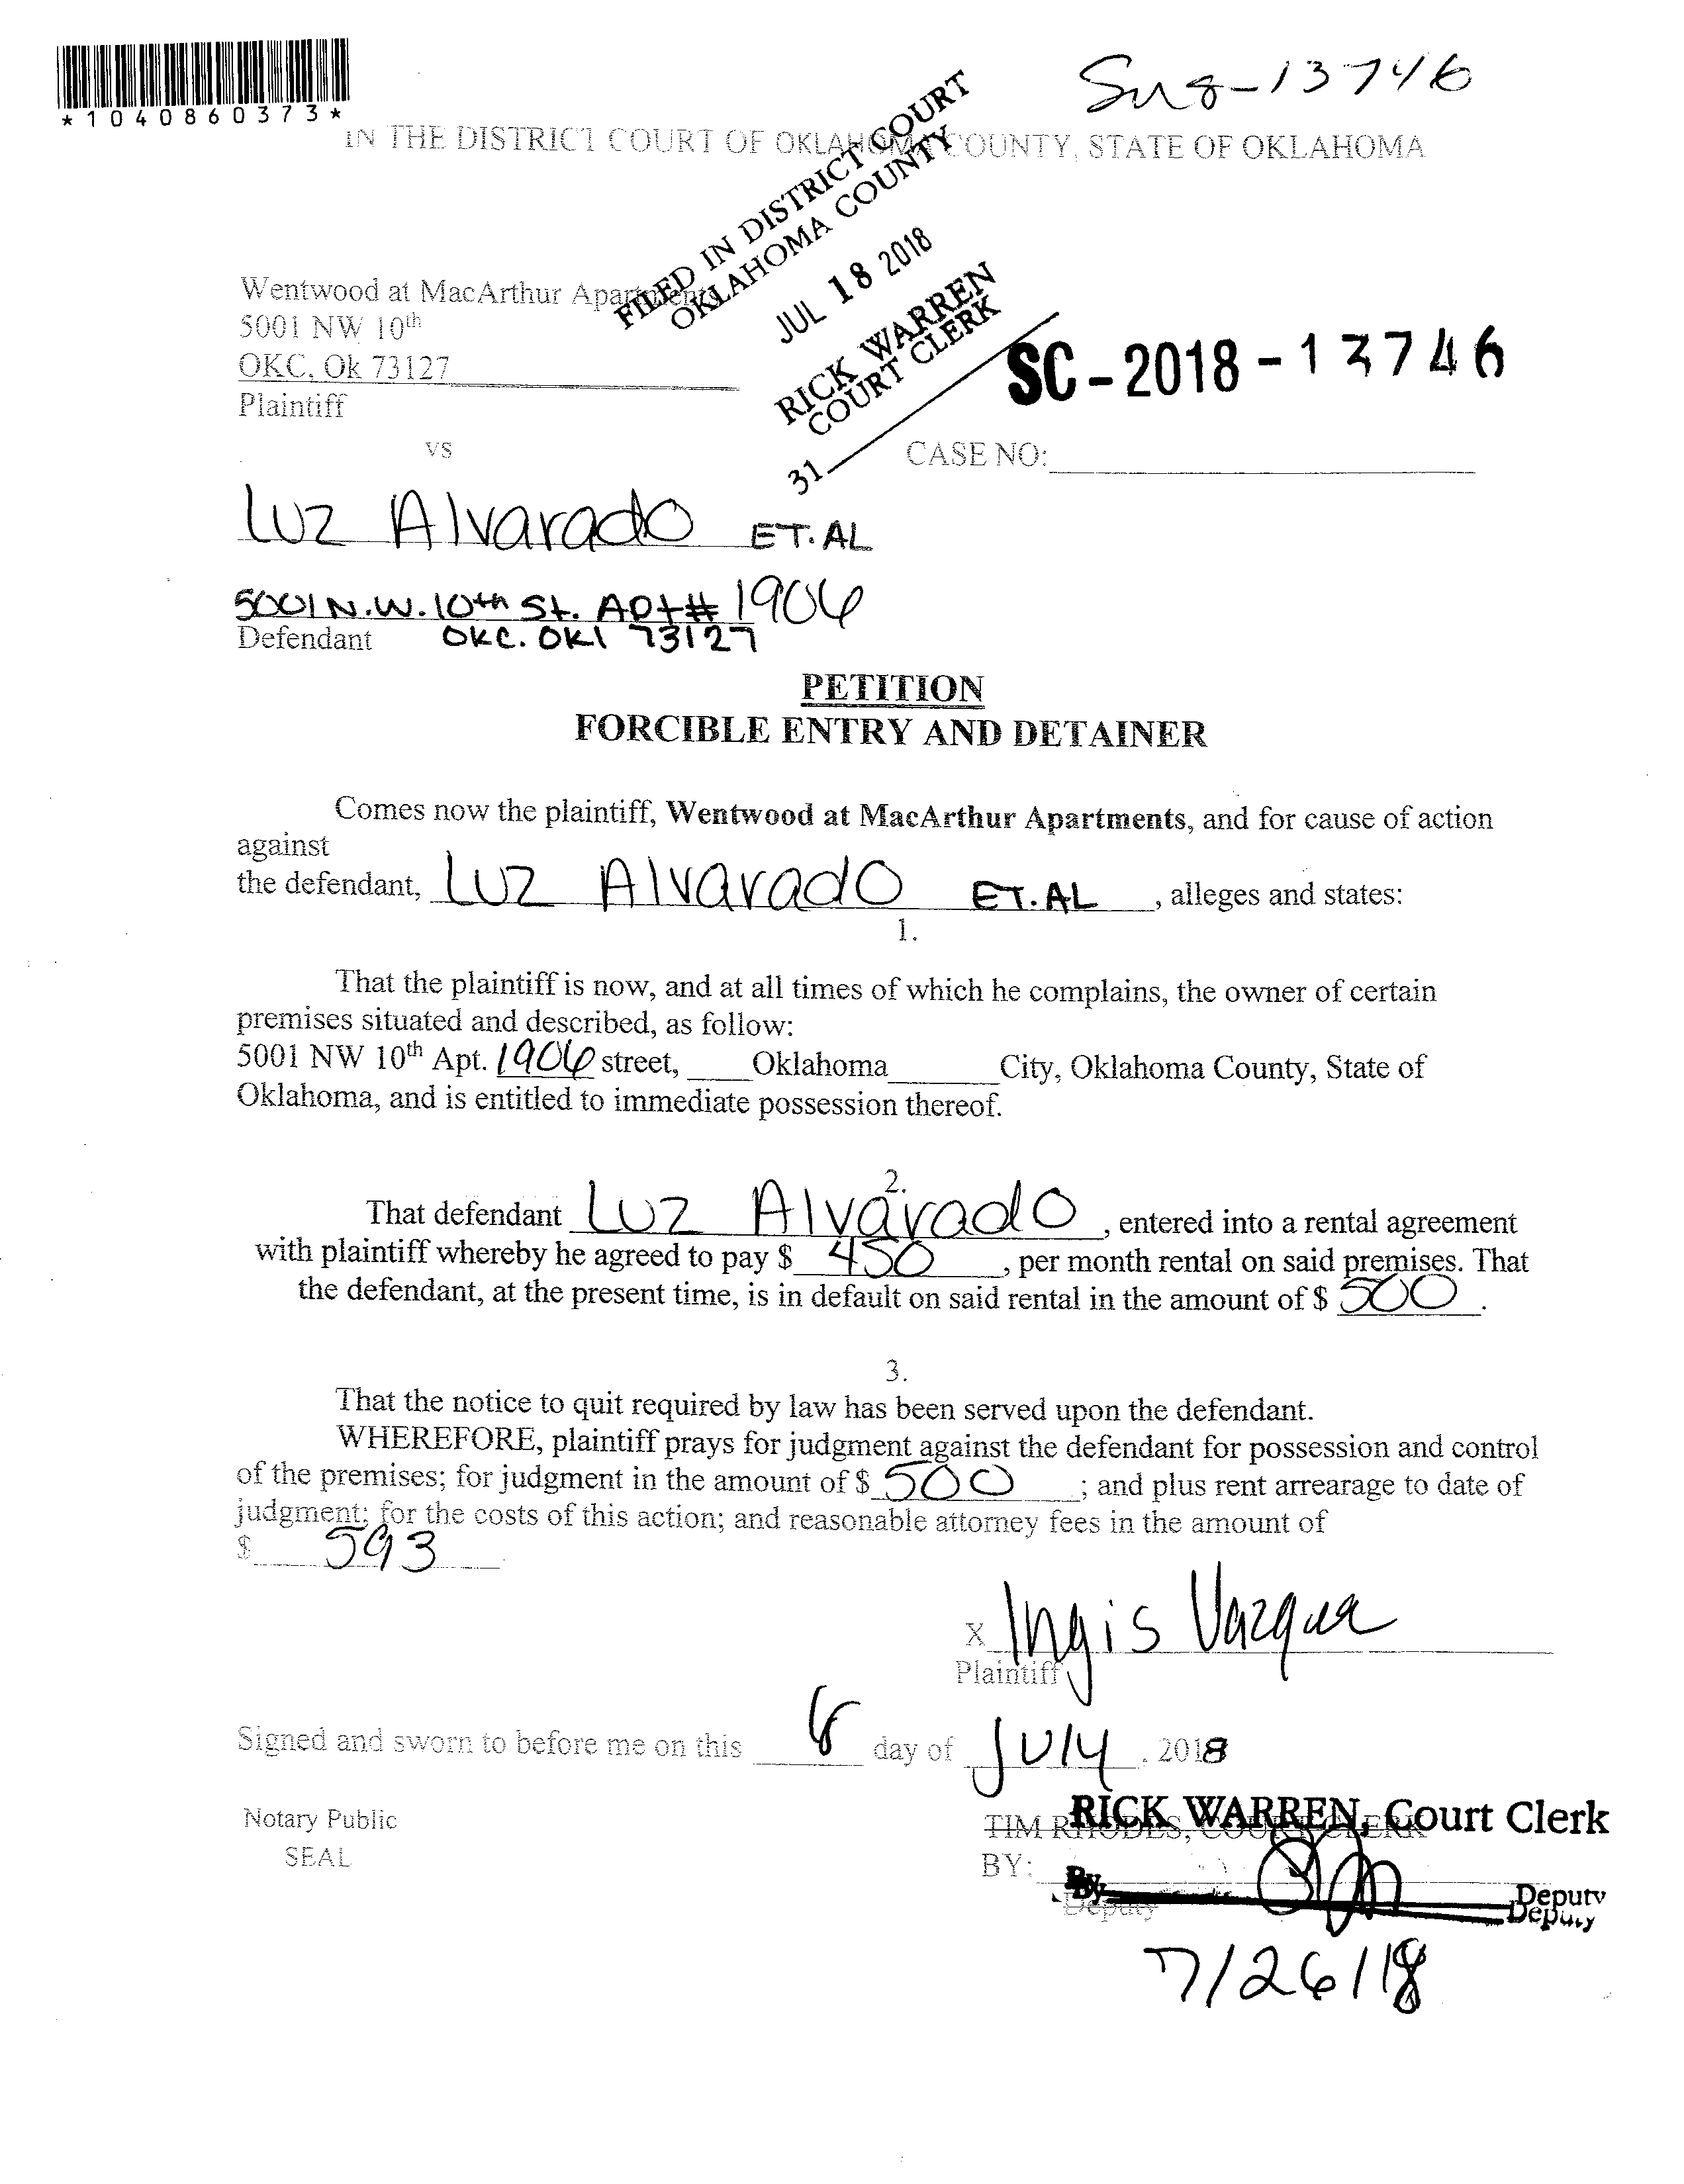 *1040860373*
IN THE DISTRICT COURT OF OKLAHOMA COUNTY, STATE OF OKLAHOMA
FILED IN DISTRICT COURT
OKLAHOMA COUNTY
JUL 18 2018
RICK WARREN
COURT CLERK
31
Wentwood at MacArthur Apartments
5001 NW 10th
OKC, Ok 73127
Plaintiff
SC-2018-13746
vs
CASE NO:
Luz Alvarado ET.AL
5001 N.W. 10th St. Apt# 1906
Defendant OKC. OKl 73127
PETITION
FORCIBLE ENTRY AND DETAINER
Comes now the plaintiff, Wentwood at MacArthur Apartments, and for cause of action
against
the defendant, Luz Alvarado ET.AL, alleges and states:
1.
That the plaintiff is now, and at all times of which he complains, the owner of certain
premises situated and described, as follow:
5001 NW 10th Apt. 1906 street, Oklahoma City, Oklahoma County, State of
Oklahoma, and is entitled to immediate possession thereof.
2.
That defendant Luz Alvarado, entered into a rental agreement
with plaintiff whereby he agreed to pay $ 450, per month rental on said premises. That
the defendant, at the present time, is in default on said rental in the amount of $ 500.
3.
That the notice to quit required by law has been served upon the defendant.
WHEREFORE, plaintiff prays for judgment against the defendant for possession and control
of the premises; for judgment in the amount of $ 500; and plus rent arrearage to date of
judgment; for the costs of this action; and reasonable attorney fees in the amount of
$ 593
X Ingis Vazquez
Plaintiff
Signed and sworn to before me on this 8 day of July, 2018
Notary Public
SEAL
TIM RHODES, COURT CLERK
RICK WARREN, Court Clerk
BY:
By
Deputy
Deputy
Deputy
7/26/18